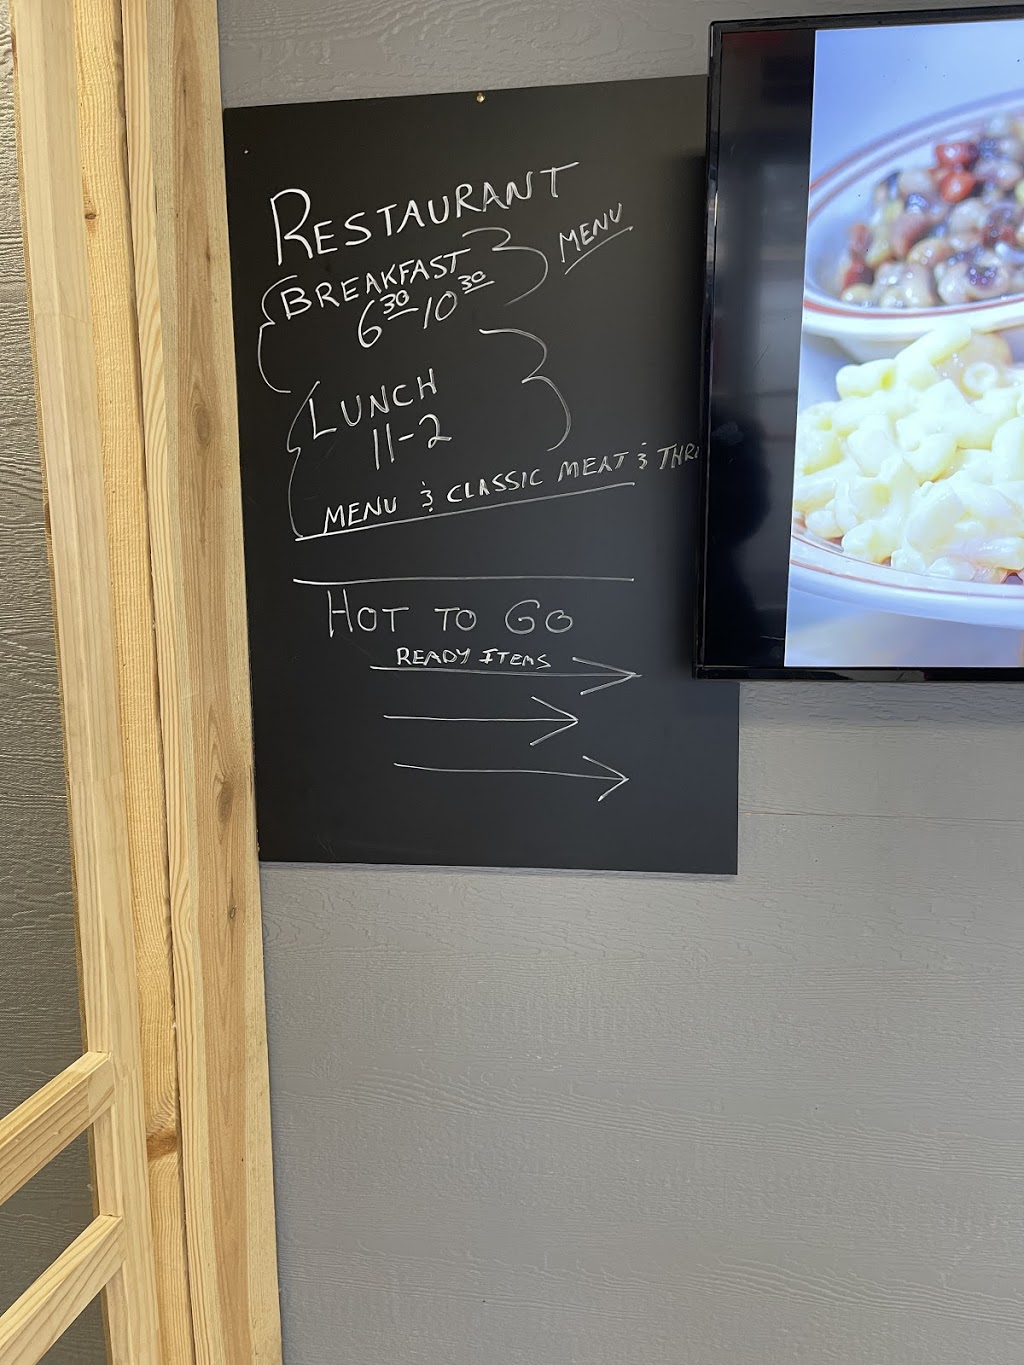 RESTAURANT
BREAKFAST MENU
6 30 - 10 30
LUNCH
11-2
MENU & CLASSIC MEAT &
HOT TO GO
READY ITEMS